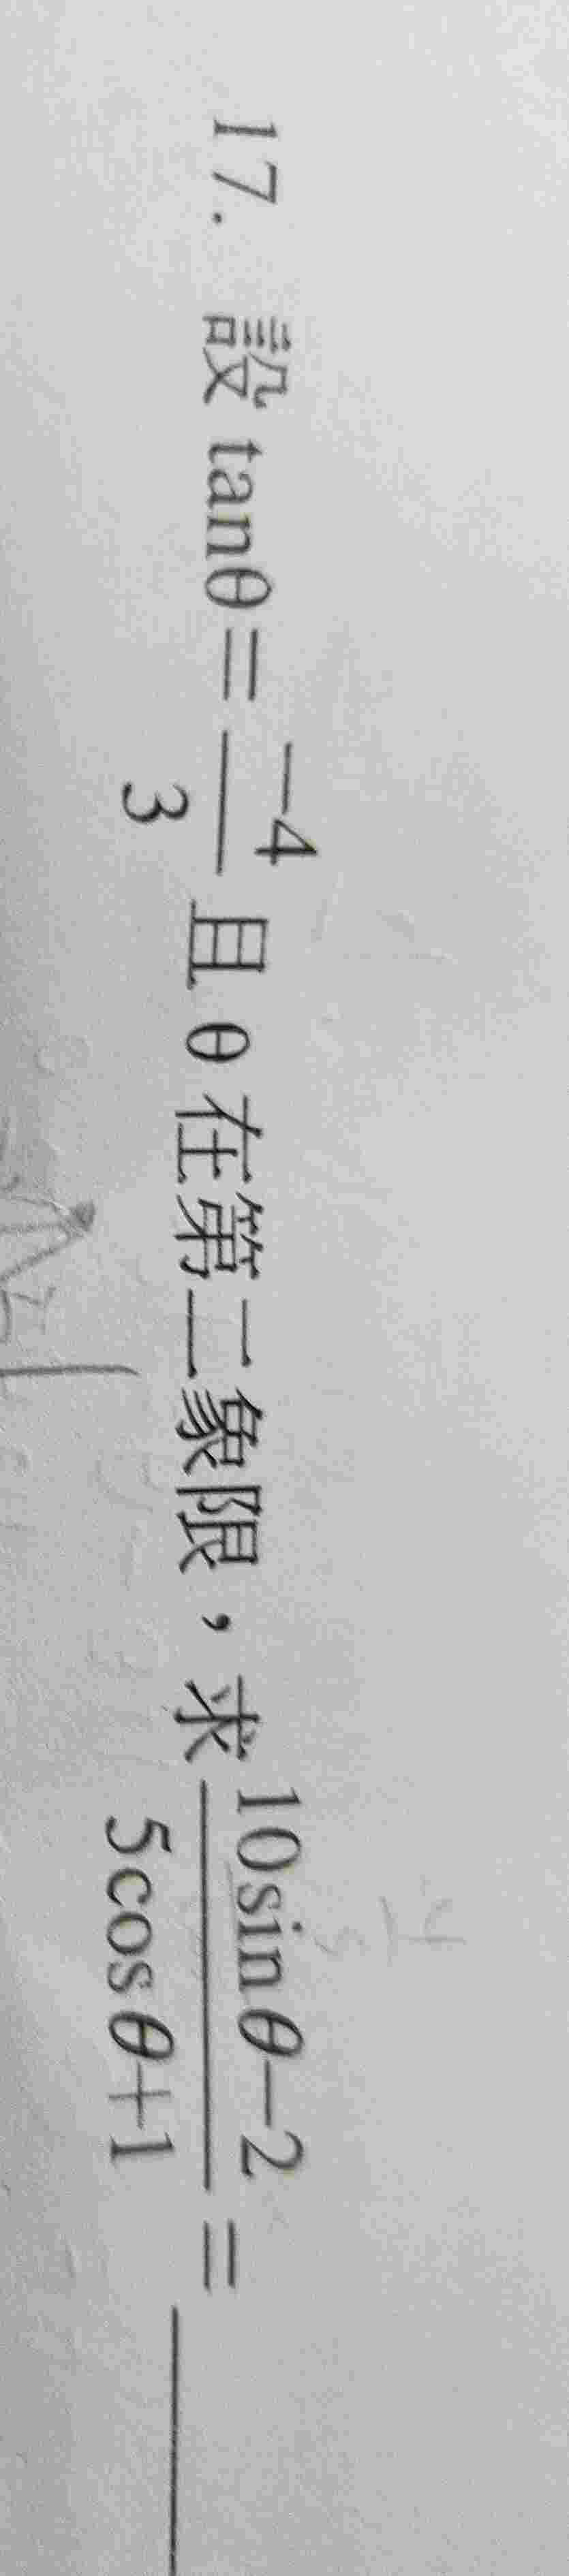 17. 設 tanθ = \frac{-4}{3} 且 θ 在第二象限，求 \frac{10sinθ-2}{5cosθ+1} = ____